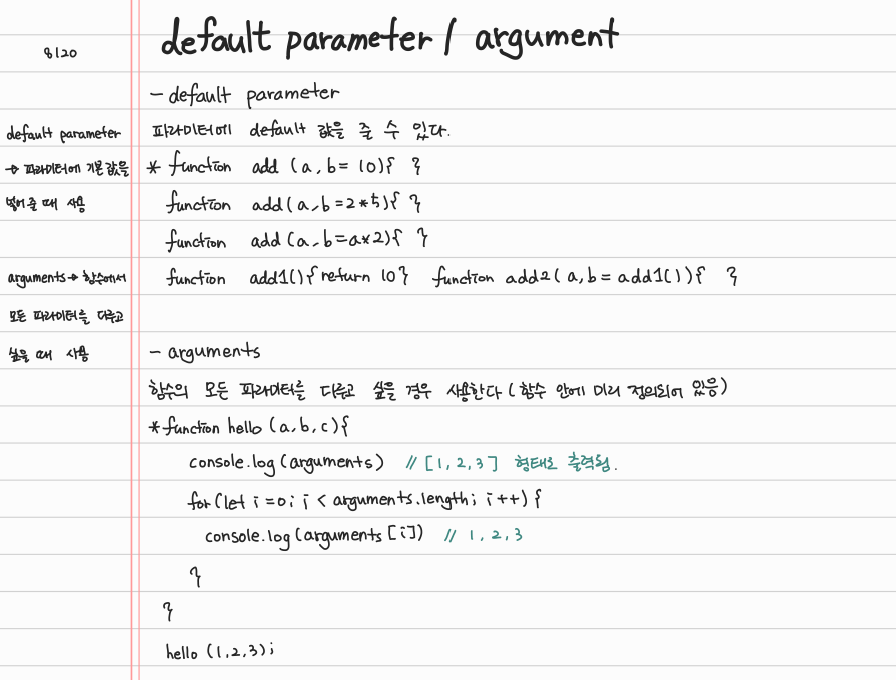 default parameter / argument
8/20
- default parameter
default parameter
→ 파라미터에 기본값을
넣어줄 때 사용
파라미터에 default 값을 줄 수 있다.
* function add (a, b= 10){ }
function add(a, b=2*5){ }
function add (a, b=a*2){ }
function add1(){ return 10} function add2( a, b = add1()){ }
arguments → 함수에서
모든 파라미터를 다루고
싶을 때 사용
- arguments
함수의 모든 파라미터를 다루고 싶을 경우 사용한다 (함수 안에 미리 정의되어 있음)
* function hello (a, b, c){
console.log (arguments) // [1, 2, 3] 형태로 출력됨.
for (let i =0; i < arguments.length; i++) {
console.log (arguments [i]) // 1, 2, 3
}
}
hello (1, 2, 3);